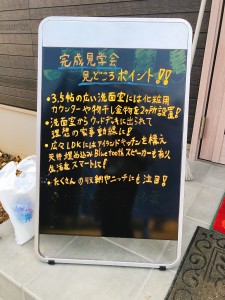 完成見学会
見どころポイント!!
・3.5帖の広い洗面室には化粧用
カウンターや物干し金物を2ヶ所設置!
・洗面室からウッドデッキに出られて
理想の家事動線に!
・広々LDKにはアイランドキッチンを構え
天井埋め込みBluetoothスピーカーもあり
生活をスマートに!
・たくさんの収納やニッチにも注目!